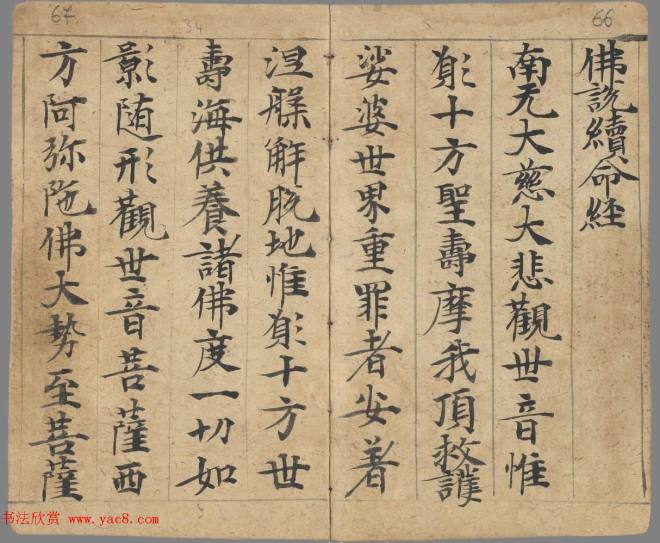 66
佛說續命經
南无大慈大悲觀世音惟
願十方聖壽摩我頂救護
娑婆世界重罪者安著
34
涅槃解脫地惟願十方世
壽海供養諸佛度一切如
影随形觀世音菩薩西
方阿弥陁佛大势至菩薩
67
书法欣赏 www.yac8.com